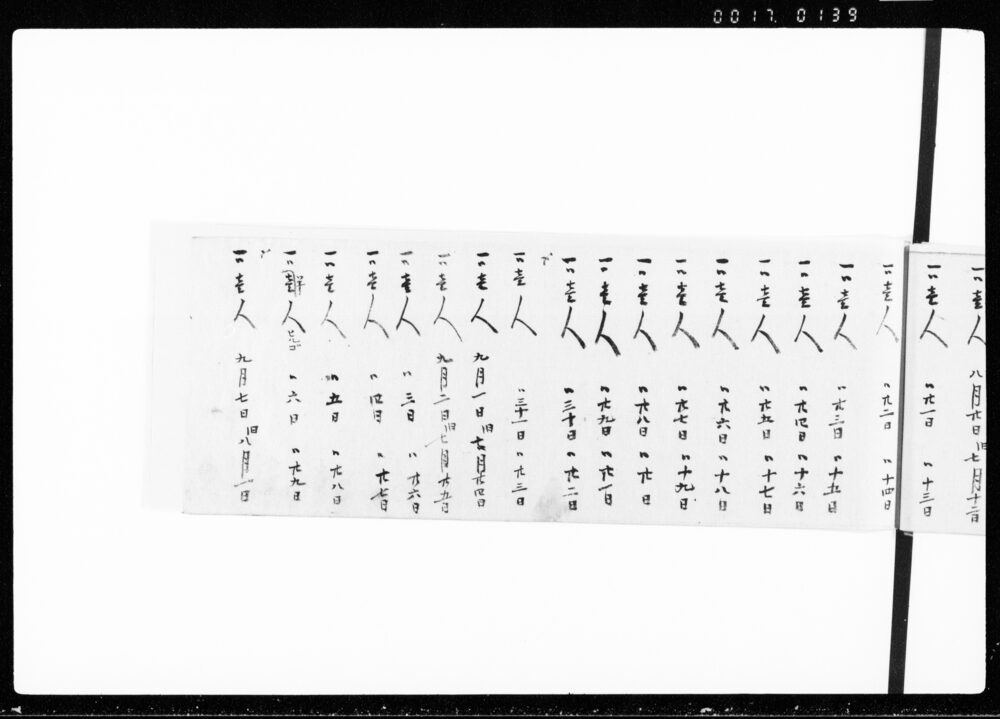 0017. 0139
一〃壱人 八月廿日 旧七月十二日
一〃壱人 〃廿一日 〃十三日
一〃壱人 〃廿二日 〃十四日
一〃壱人 〃廿三日 〃十五日
一〃壱人 〃廿四日 〃十六日
一〃壱人 〃廿五日 〃十七日
一〃壱人 〃廿六日 〃十八日
一〃壱人 〃廿七日 〃十九日
一〃壱人 〃廿八日 〃廿日
一〃壱人 〃廿九日 〃廿一日
一〃壱人 〃三十日 〃廿二日
一〃壱人 〃三十一日 〃廿三日
一〃壱人 九月一日 旧七月廿四日
一〃壱人 九月二日 旧七月廿五日
一〃壱人 〃三日 〃廿六日
一〃壱人 〃四日 〃廿七日
一〃壱人 〃五日 〃廿八日
一〃半人 ヒルゴ 〃六日 〃廿九日
一〃壱人 九月七日 旧八月一日